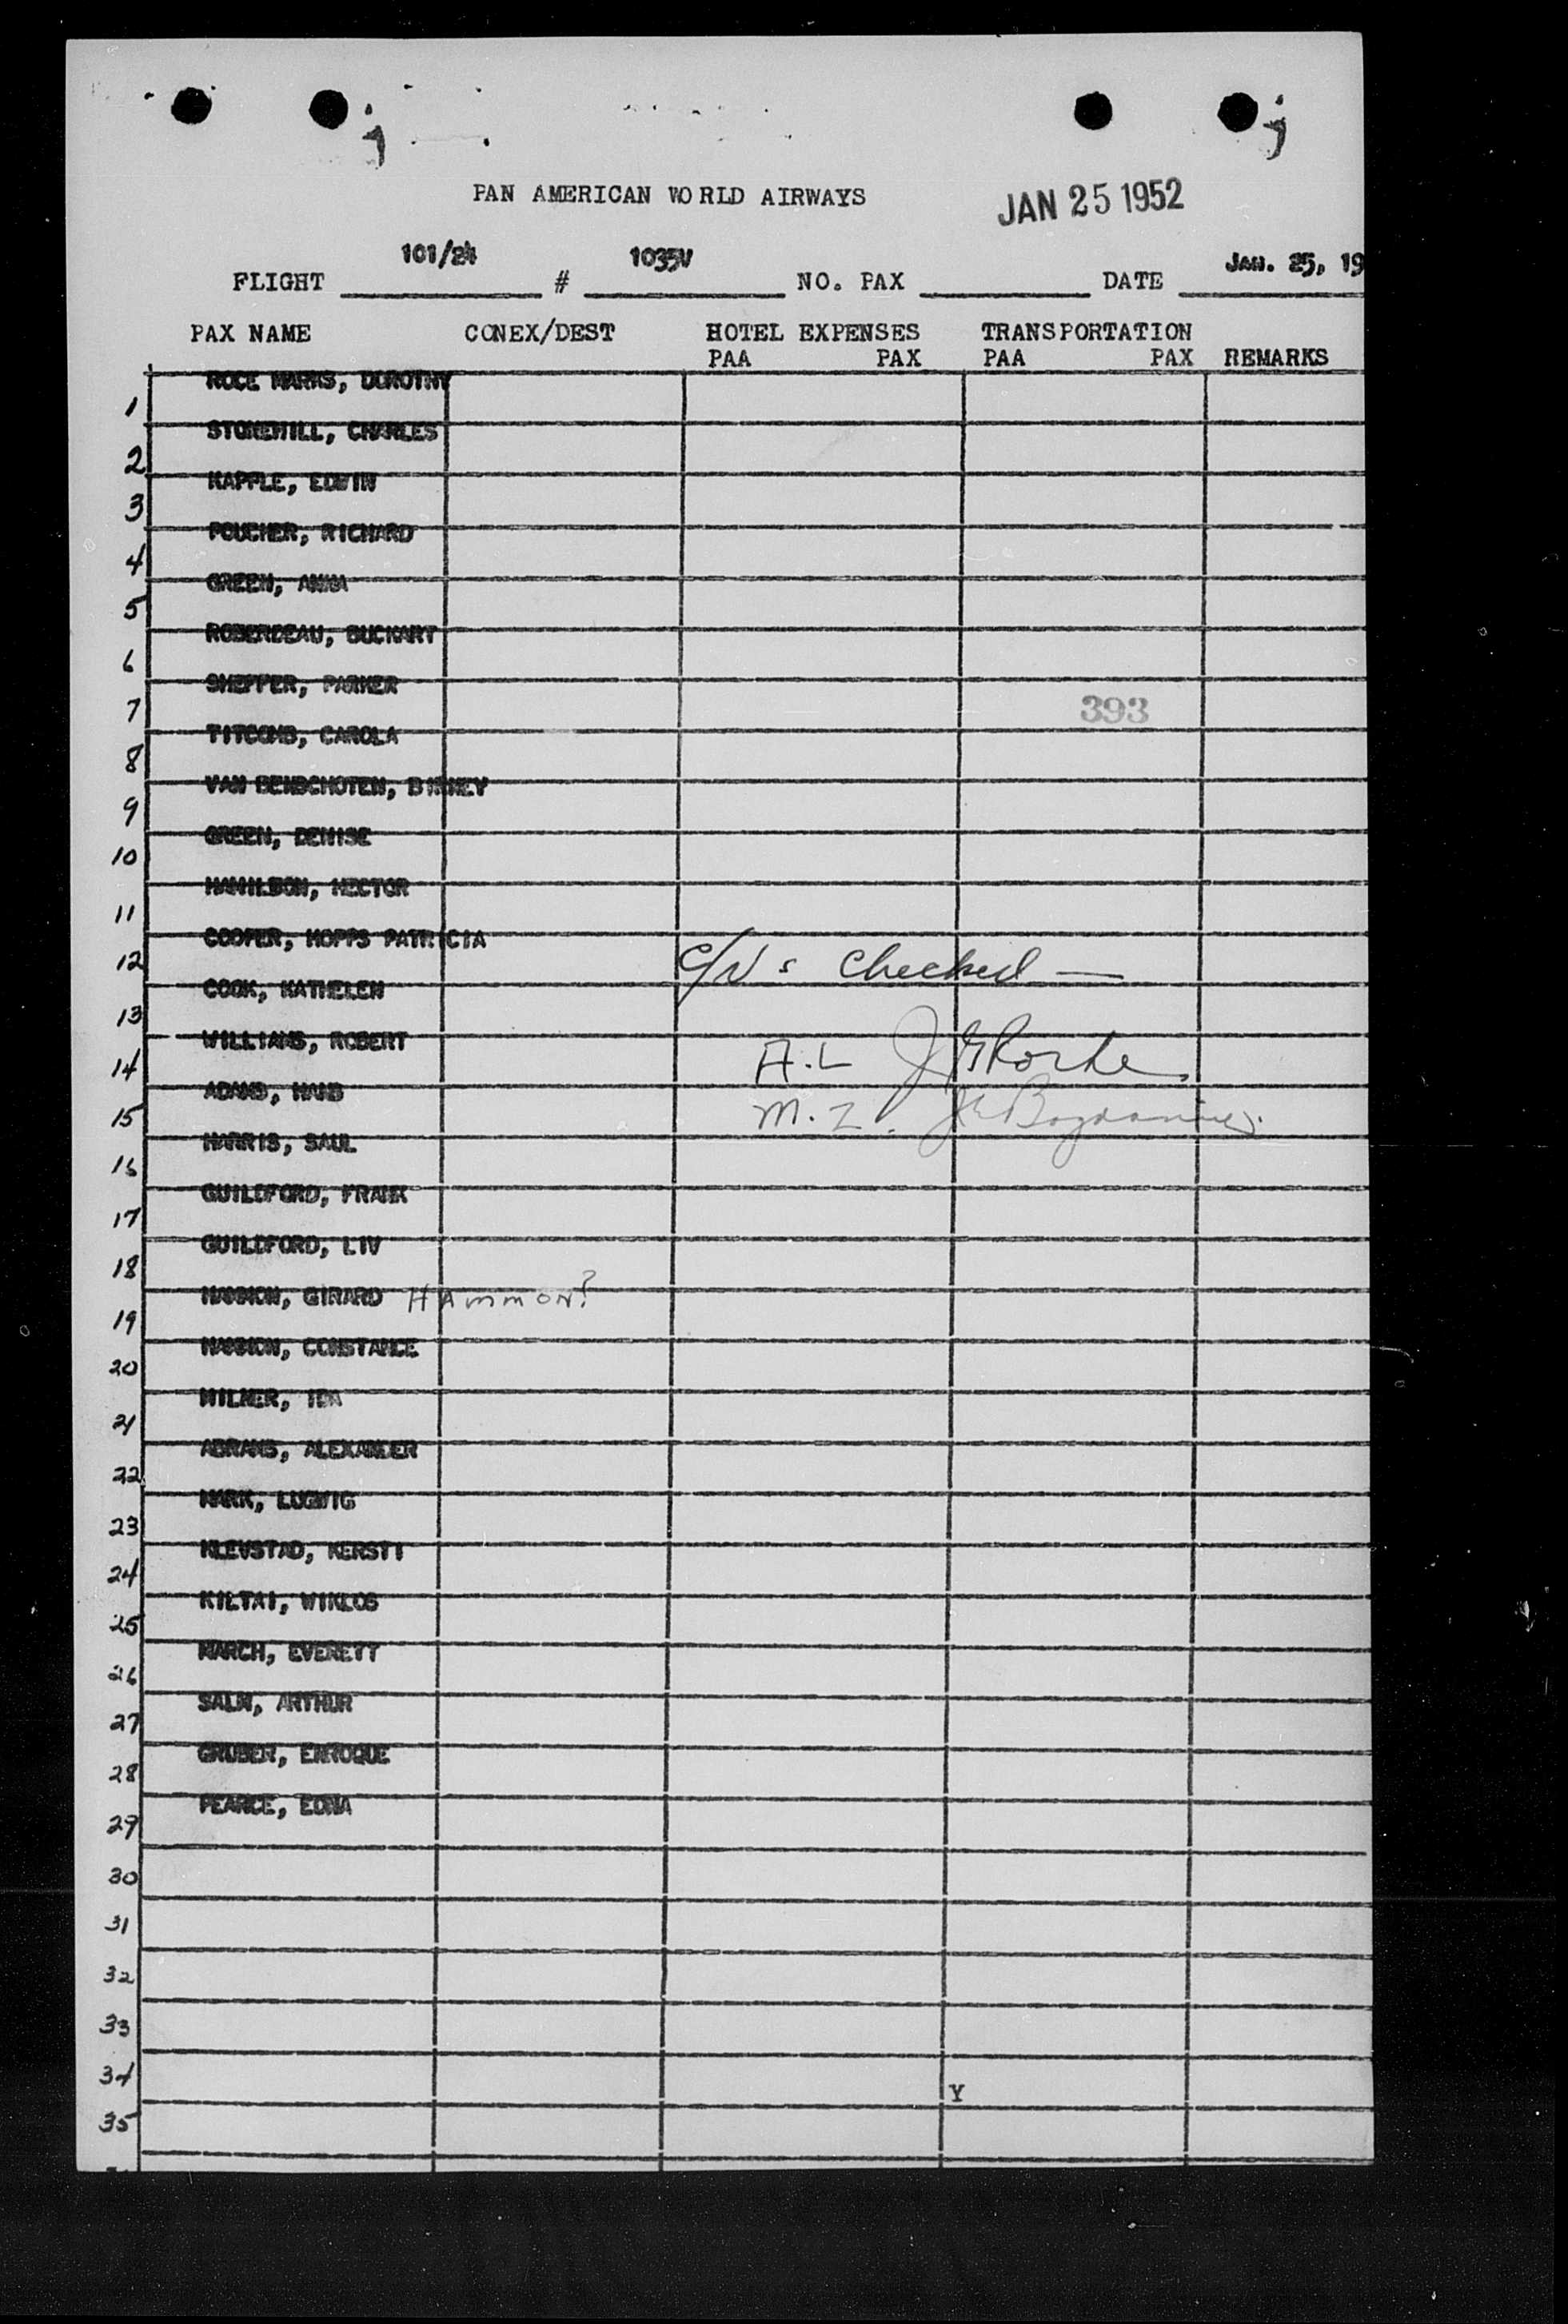 PAN AMERICAN WORLD AIRWAYS
JAN 25 1952
FLIGHT 101/24 # 1035V NO. PAX DATE JAN. 25, 19
PAX NAME CONEX/DEST HOTEL EXPENSES TRANSPORTATION
PAA PAX PAA PAX REMARKS
1 MARKS, DOROTHY
2 STONEHILL, CHARLES
3 KAPPLE, EDWIN
4 POUCHER, RICHARD
5 GREEN, ANNA
6 ROBERDEAU,
7 SHEFFER, PARKER
393
8 TITCOMB, CAROLA
9 VAN BENSCHOTEN, BINNEY
10 GREEN, DENISE
11 HECTOR
12 COOPER, HOPPS PATRICIA
C/Ns checked —
13 COOK, KATHELEN
14 WILLIAMS, ROBERT
A.L
15 ADAMS, HANS
M.Z.
16 HARRIS, SAUL
17 GUILDFORD, FRANK
18 GUILDFORD, LIV
19 GIRARD HAmmON?
20 CONSTANCE
21 IDA
22 ABRAMS, ALEXANDER
23 LUDWIG
24 KLEVSTAD, KERSTI
25
26 MARCH, EVERETT
27 ARTHUR
28 GRUBER, ENROQUE
29 PEARCE, EDNA
30
31
32
33
34
Y
35